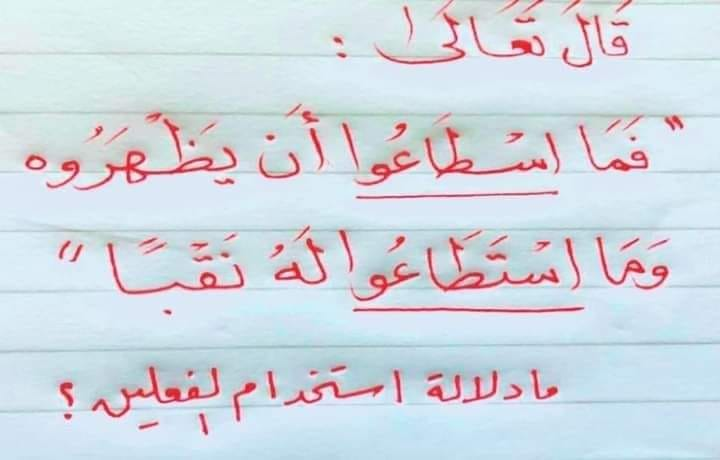 قَالَ تَعَالَىٰ :
"فَمَا اسْطَاعُوا أَن يَظْهَرُوه
وَمَا اسْتَطَاعُوا لَهُ نَقْبًا"
ما دلالة استخدام الفعلين ؟